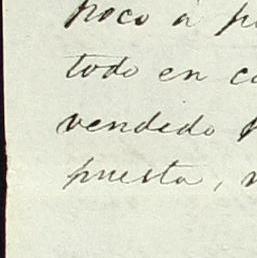 poco á
todo en
vendedo
puesta,